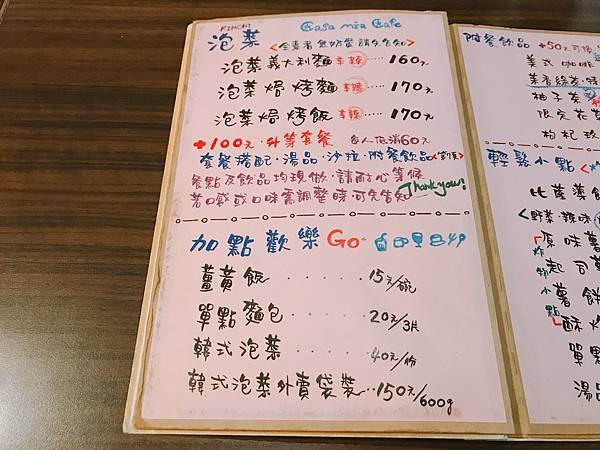 KIMCHI
泡菜
Casa mia Cafe
<全素者 無奶蛋 請先告知>
泡菜義大利麵 辛辣 160元
泡菜焗烤麵 辛辣 170元
泡菜焗烤飯 辛辣 170元
+100元·升等套餐 每人低消60元
套餐搭配·湯品·沙拉·附餐飲品
餐點及飲品均現做·請耐心等候
若口感或口味需調整時可先告知 Thank you!
加點歡樂 Go
薑黃飯 ‧‧‧‧‧ 15元/碗
單點麵包 ‧‧‧‧ 20元/3片
韓式泡菜 ‧‧‧‧ 40元/份
韓式泡菜外賣袋裝…150元/600g
附餐飲品 +50元可換
美式咖啡
柚子茶
限定花草
枸杞玫
輕鬆小點
比薩薄餅
<野菜·辣味
炸物小點
原味薯
起司
薯餅
酥炸
單點
湯品